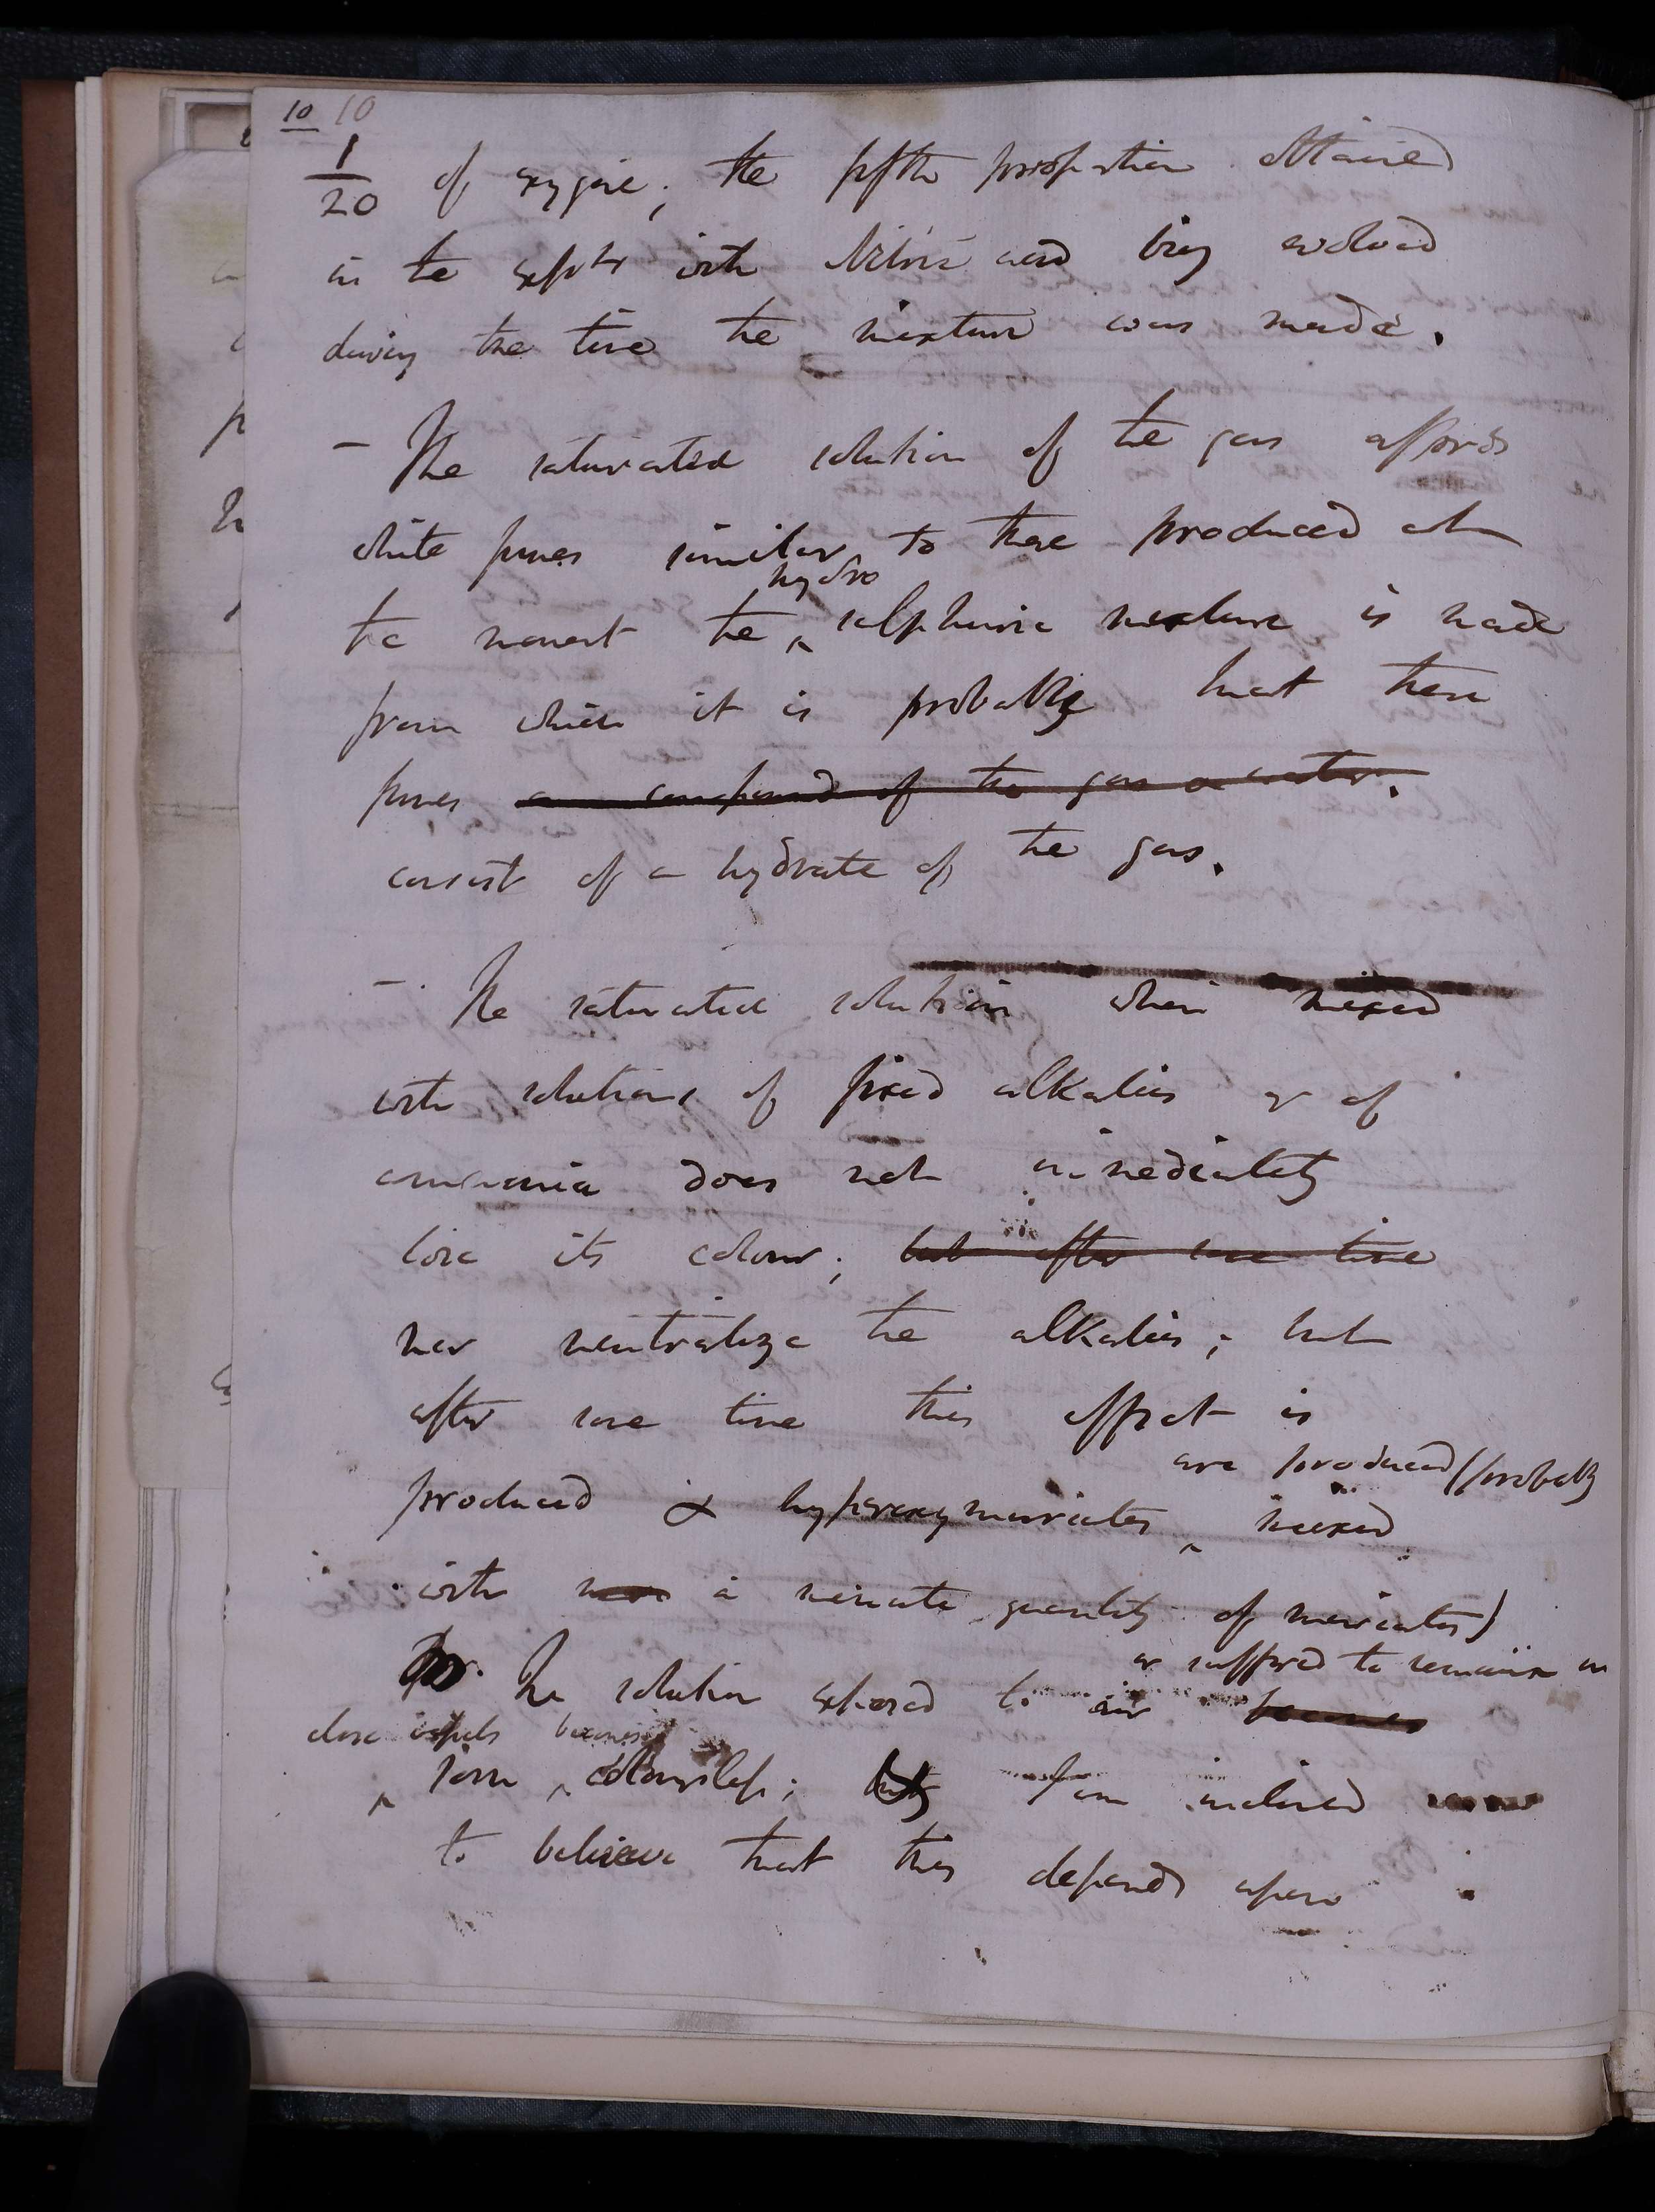 10 10
1/20 of oxygene; the fifth proportion obtained
in the expts with Nitric acid being evolved
during the time the mixture was made.
– The saturated solution of the gas affords
white fumes similar to those produced at
hydro
the moment the ^ sulphuric mixture is made
from which it is probable that these
fumes are compound of the gas & water.
consist of a hydrate of the gas.
– The saturated solution when mixed
with solutions of fixed alkalies or of
ammonia does not immediately
lose its colour; but after some time
nor neutralize the alkalies; but
after some time this effect is
are produced (probably
produced & hyperoxymuriates ^ mixed
with a minute quantity of muriates)
or suffered to remain in
The solution exposed to air becomes
close vessels becomes
^ soon ^ colourless; I am inclined
to believe that this depends upon